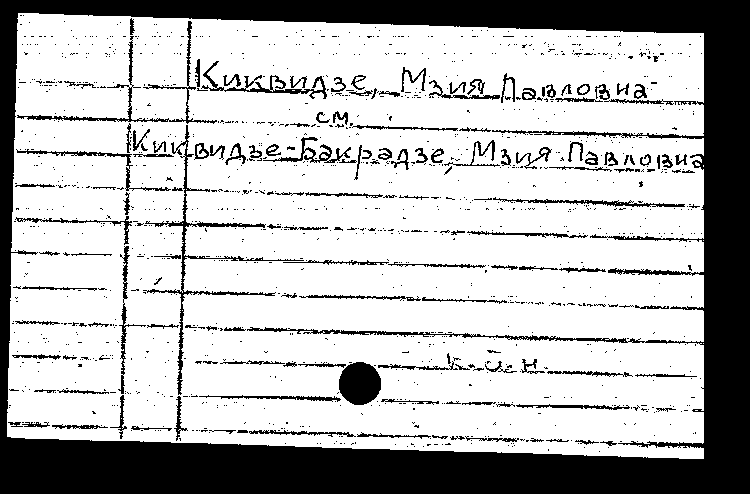 Киквидзе, Мзия Павловна
см.
Киквидзе-Бакрадзе, Мзия Павловна